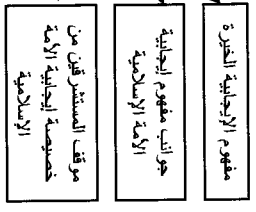 مفهوم الإيجابية الخيرة
جوانب مفهوم إيجابية
الأمة الإسلامية
موقف المستشرقين من
خصيصة إيجابية الأمة
الإسلامية